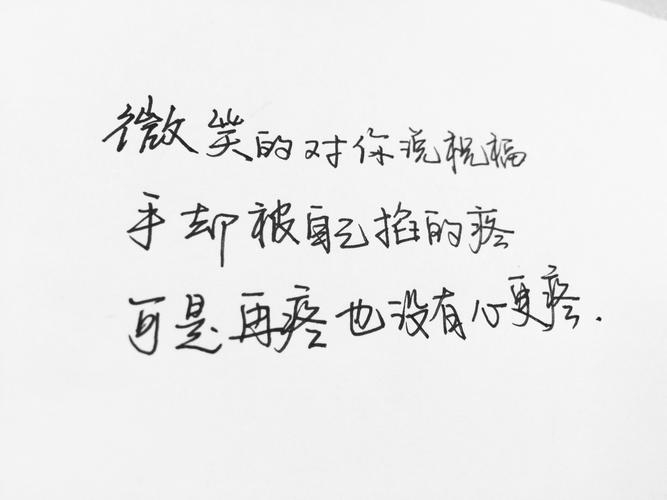 微笑的对你说祝福
手却被自己掐的疼
可是再疼也没有心更疼.